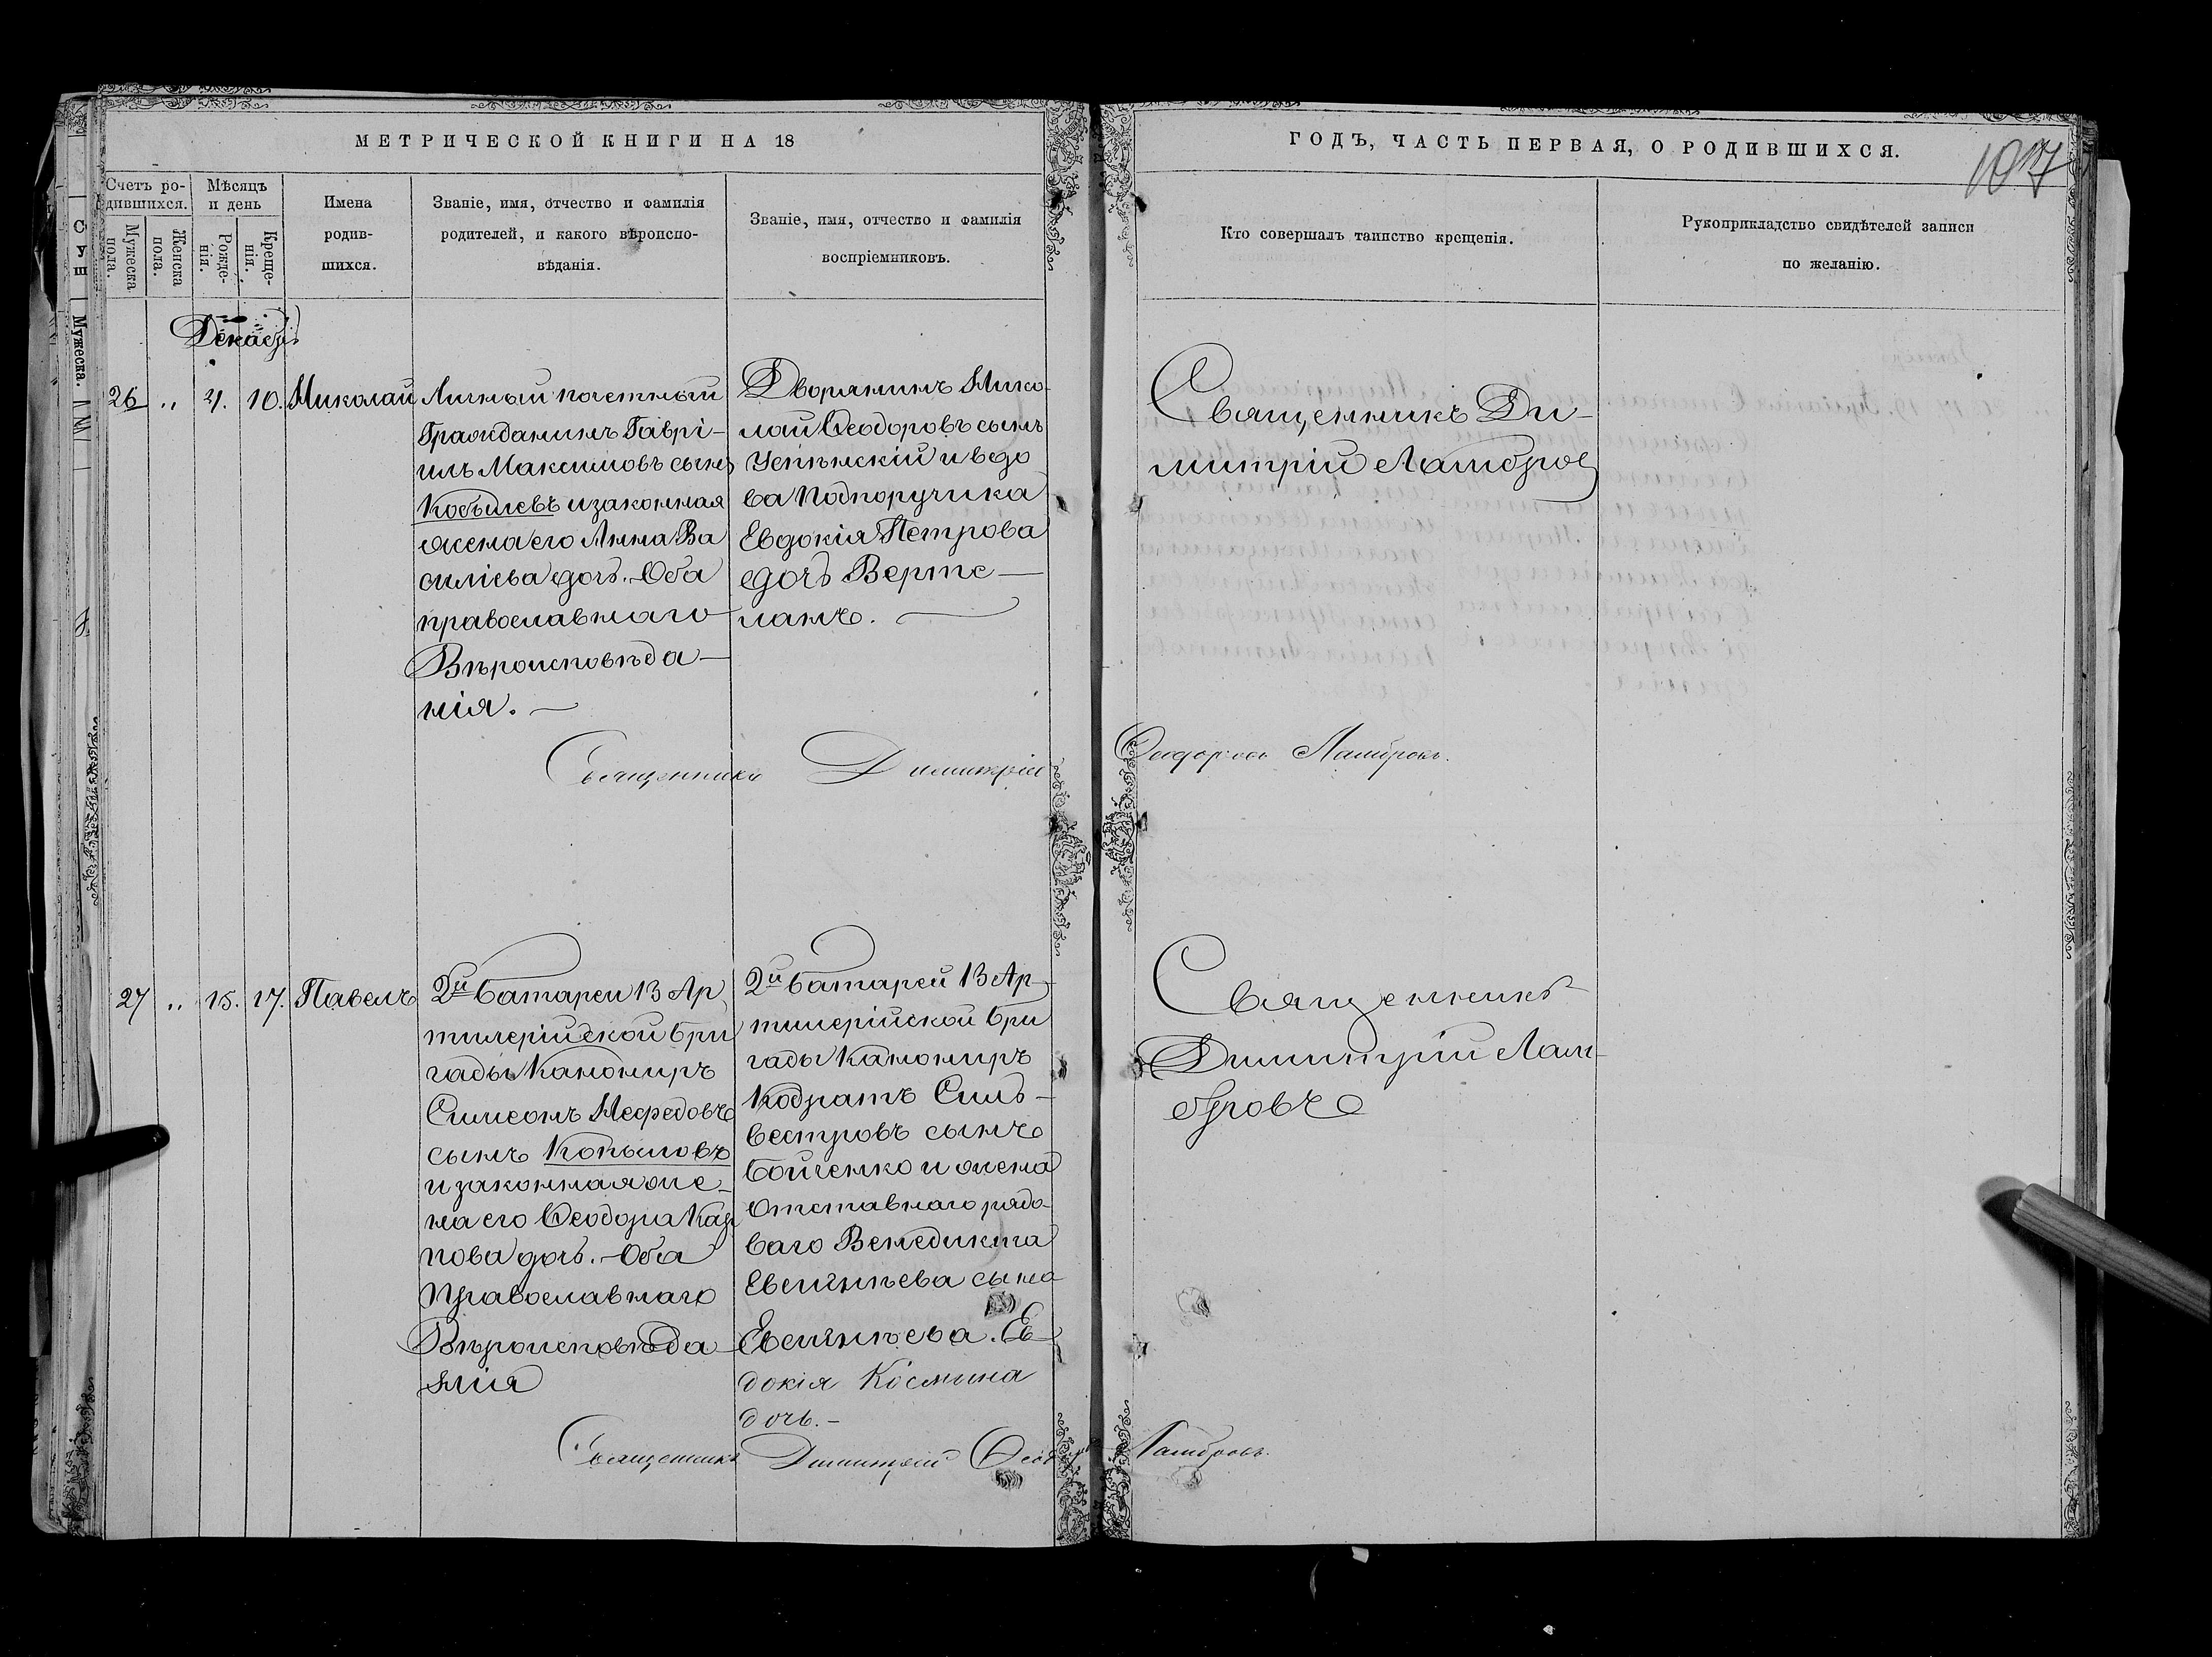 МЕТРИЧЕСКОЙ КНИГИ НА 18
ГОДЪ, ЧАСТЬ ПЕРВАЯ, О РОДИВШИХСЯ.
107
Счетъ ро-
дившихся.
Мужеска
пола.
Женска
пола.
Мѣсяцъ
и день
Рожде-
нія.
Креще-
нія.
Имена
родив-
шихся.
Званіе, имя, отчество и фамилія
родителей, и какого вѣроиспо-
вѣданія.
Званіе, имя, отчество и фамилія
воспріемниковъ.
Кто совершалъ таинство крещенія.
Рукоприкладство свидѣтелей записи
по желанію.
Декабрь
26 " 4. 10. Николай
Личный почетный
Гражданинъ Гаврі-
илъ Максимовъ сынъ
Кобылевъ и законная
жена его Анна Ва
силіева дочь. Оба
православнаго
Вѣроисповѣда-
нія.
Дворянинъ Нико-
лай Ѳеодоровъ сынъ
и вдо
ва Подпоручика
Евдокія Петрова
дочь Верте-
ланъ.
Священникъ Ди-
митрій Ламбров
Священникъ Димитрій Ѳеодоровъ Ламбровъ.
27 " 15. 17. Павелъ
2й батареи 13 Ар
тилерійской бри
гады Канониръ
Симеонъ Нефедовъ
сынъ Копыловъ
и законная же-
на его Ѳеодора Кар
пова дочь. Оба
Православнаго
Вѣроисповѣда
нія
2й батареи 13 Ар-
тилерійской бри
гады Канониръ
Кодратъ Силь-
вестровъ сынъ
Бойченко и жена
Отставнаго рядо-
ваго Венедикта
Евсигнѣева сына
Евсигнѣева. Ев-
докія Космина
дочь.-
Священникъ
Димитрій Лам-
бровъ
Священникъ Димитрій Ламбровъ.
Мужеска.